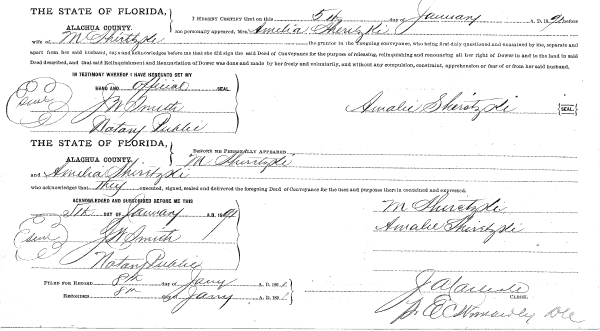 THE STATE OF FLORIDA,
ALACHUA COUNTY.
I HEREBY CERTIFY that on this 5th day of January A. D. 189 before
me personally appeared, Mrs. Amelia
wife of M the grantor in the foregoing conveyance, who being first duly questioned and examined by me, separate and
apart from her said husband, says and acknowledges before me that she did sign the said Deed of Conveyance for the purpose of releasing, relinquishing and renouncing all her right of Dower in and to the land in said
Deed described, and that said Relinquishment and Renunciation of Dower was done and made by her freely and voluntarily, and without any compulsion, constraint, apprehension or fear of or from her said husband.
IN TESTIMONY WHEREOF I HAVE HEREUNTO SET MY
HAND AND official SEAL.
Seal
J W Smith
Notary Public
Amalie SEAL
THE STATE OF FLORIDA,
ALACHUA COUNTY.
BEFORE ME PERSONALLY APPEARED
M
and Amelia
who acknowledges that they executed, signed, sealed and delivered the foregoing Deed of Conveyance for the uses and purposes therein contained and expressed.
ACKNOWLEDGED AND SUBSCRIBED BEFORE ME THIS
5th DAY OF January A.D. 189
Seal
J W Smith
Notary Public
M
Amalie
FILED FOR RECORD 8th day of Jany A. D. 189
RECORDED 8th Jany A. D. 189
CLERK.